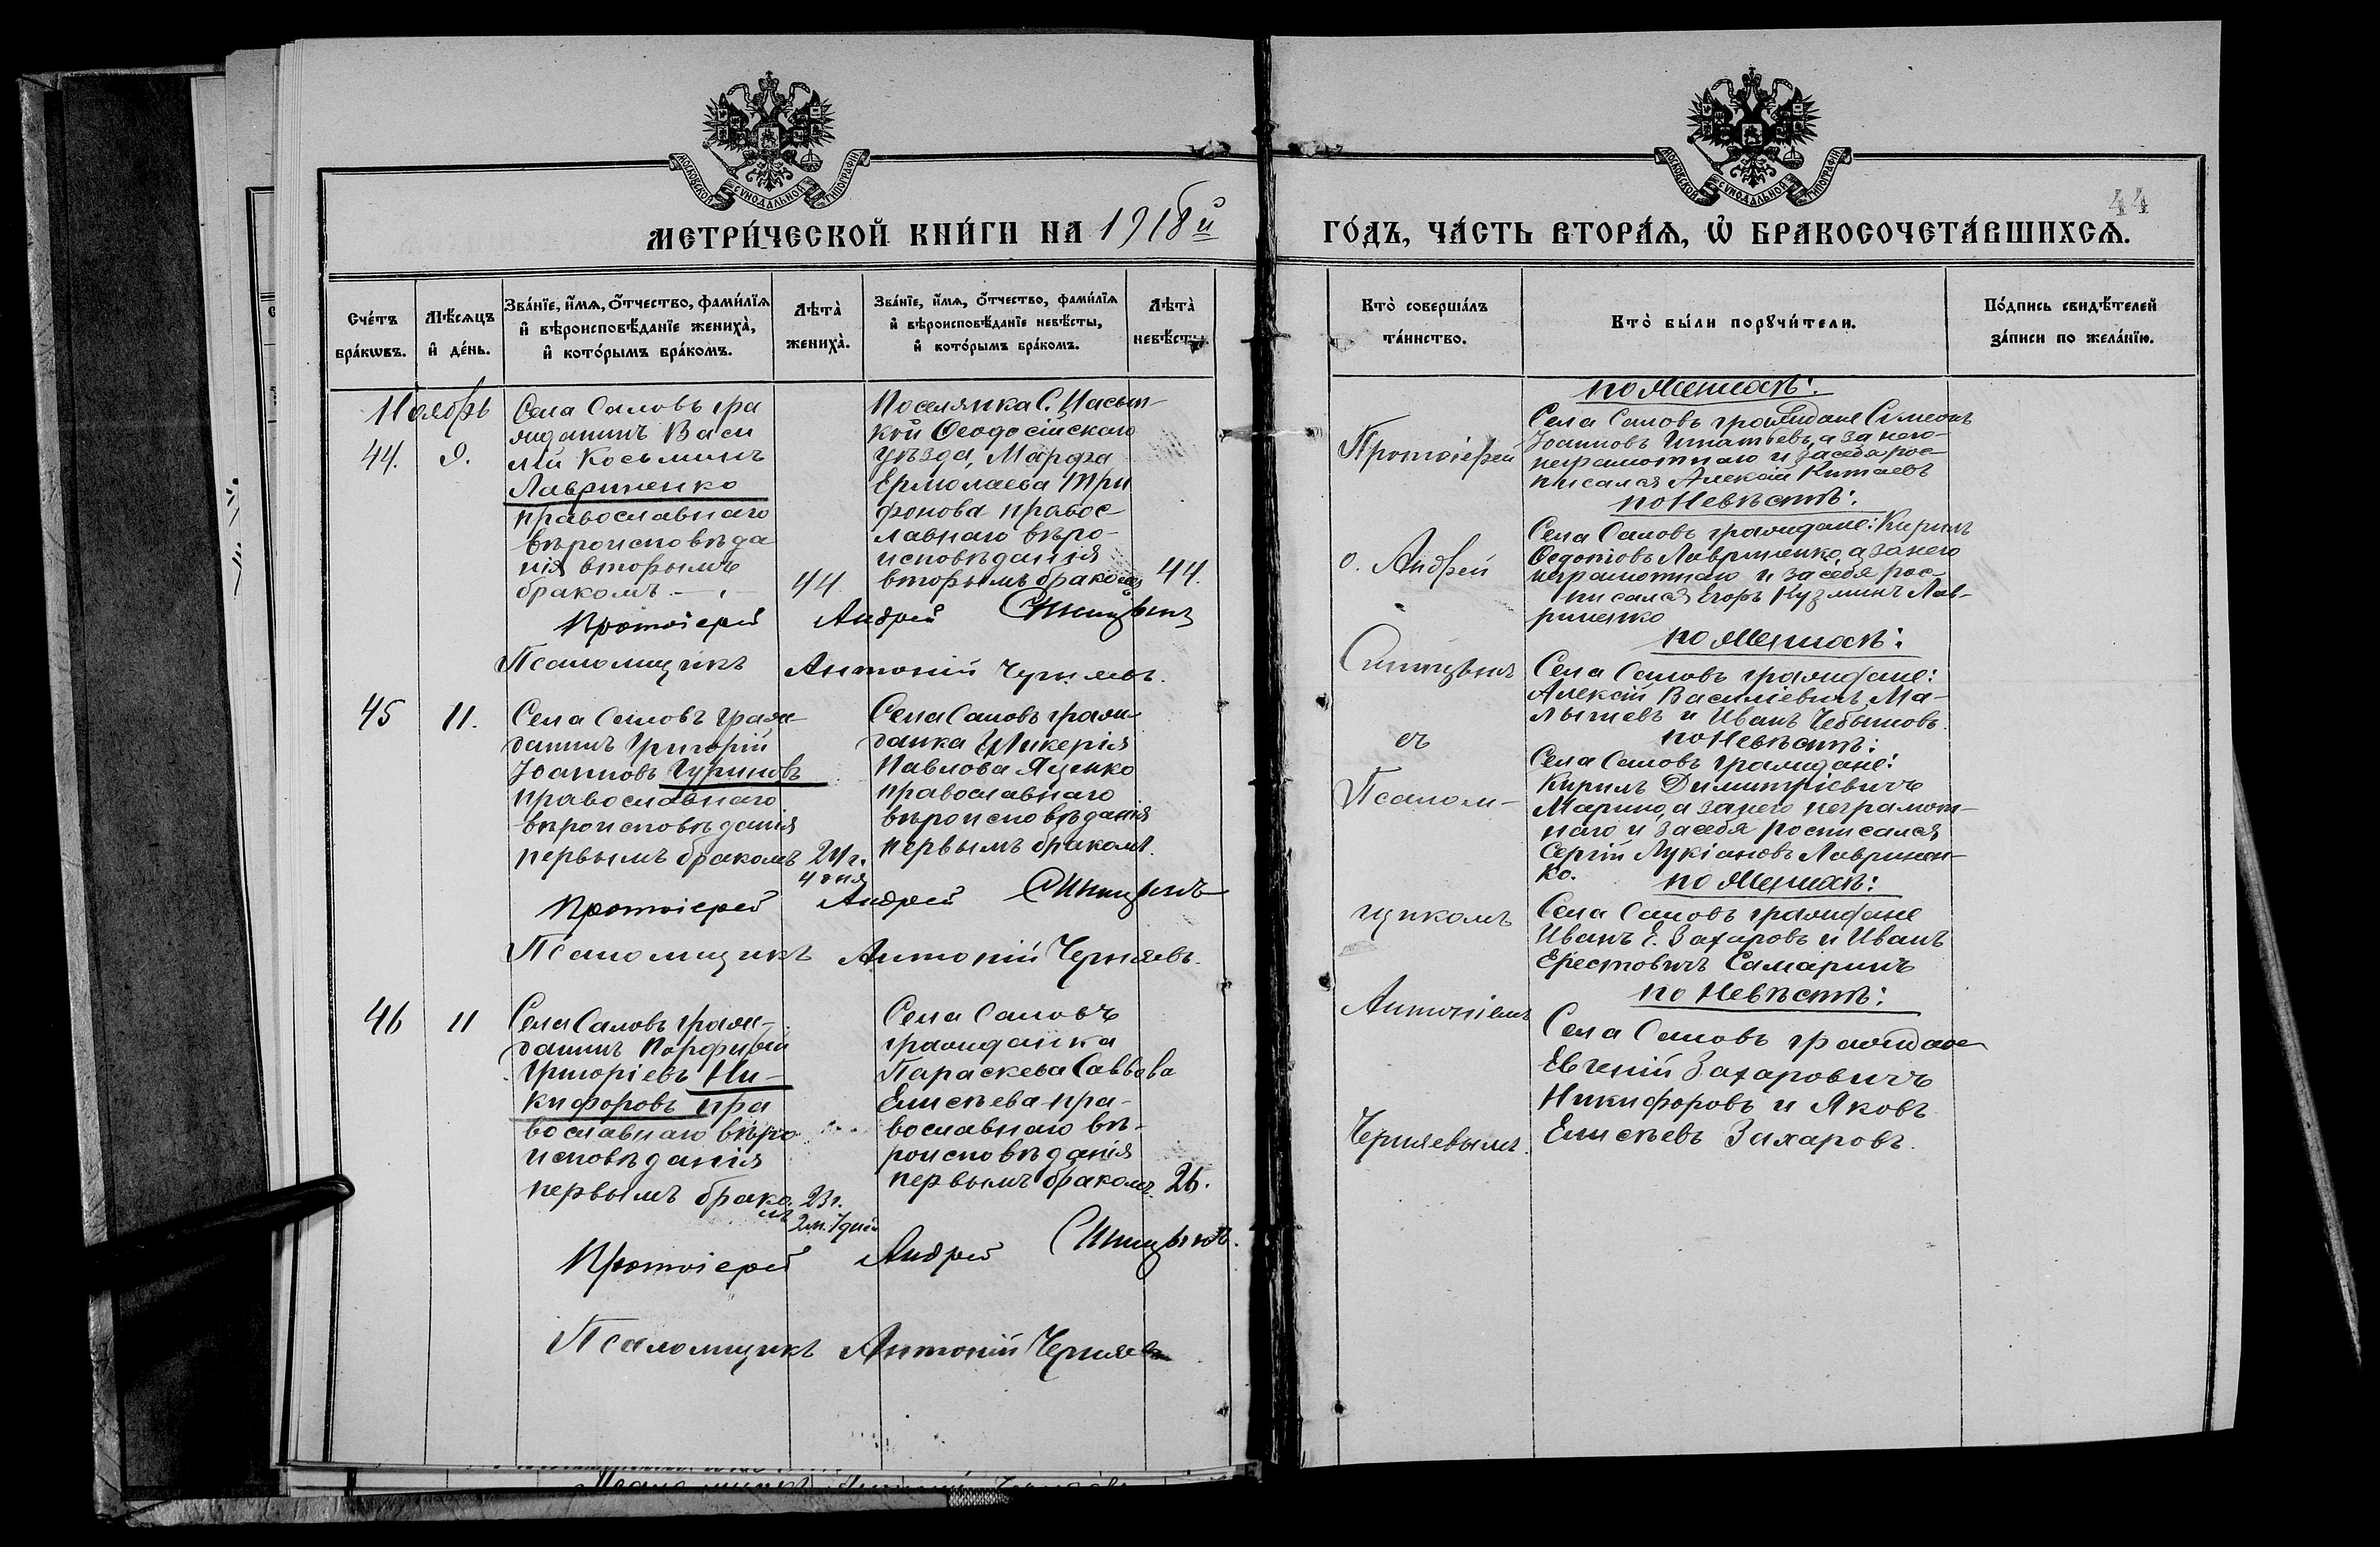 МОСКОВСКОЙ СѴНОДАЛЬНОЙ ТИПОГРАФІИ
МЕТРИ́ЧЕСКОЙ КНИ́ГИ НА 1918й
Сче́тъ бра́кѡвъ.
Мѣ́сяцъ и҆ де́нь.
Зва́нїе, и҆́мѧ, ѻ҆́тчество, фами́лїѧ
и҆ вѣроисповѣ́данїе жениха̀,
и҆ кото́рымъ бра́комъ.
Лѣта̀
жениха̀.
Зва́нїе, и҆́мѧ, ѻ҆́тчество, фами́лїѧ
и҆ вѣроисповѣ́данїе невѣ́сты,
и҆ кото́рымъ бра́комъ.
Лѣта̀
невѣ́сты.
Ноябрь
44. 9.
Села Саловъ гра
жданинъ Васи
лій Косьминъ
Лавриненко
православнаго
вѣроисповѣда
нія вторымъ
бракомъ.
44
Поселянка С. Насып-
кой Ѳеодосійскаго
уѣзда, Марфа
Ермолаева Три
фонова правос-
лавнаго вѣро-
исповѣданія
вторымъ бракомъ
44.
Протоіерей Андрей Синицынъ
Псаломщикъ Антоній Черняевъ.
45 11.
Села Саловъ граж-
данинъ Григорій
Іоанновъ Гуриновъ
православнаго
вѣроисповѣданія
первымъ бракомъ
21 г.
4 дня
Села Саловъ граж-
данка Гликерія
Павлова Яценко
православнаго
вѣроисповѣданія
первымъ бракомъ.
Протоіерей Андрей Синицынъ
Псаломщикъ Антоній Черняевъ.
46 11
Села Саловъ граж-
данинъ Порфирій
Григоріевъ Ни-
кифоровъ пра
вославнаго вѣро
исповѣданія
первымъ бракомъ
23 г.
2 м. 7 дней
Села Саловъ
гражданка
Параскева Саввова
Елисѣева пра-
вославнаго вѣ-
роисповѣданія
первымъ бракомъ.
26.
Протоіерей Андрей Синицынъ.
Псаломщикъ Антоній Черняевъ
МОСКОВСКОЙ СѴНОДАЛЬНОЙ ТИПОГРАФІИ
44
ГО́ДЪ, ЧА́СТЬ ВТОРА́Ѧ, Ѽ БРАКОСОЧЕТА́ВШИХСѦ.
Кто̀ соверша́лъ
та́инство.
Кто̀ бы́ли порꙋчи́тели.
По́дпись свидѣ́телей
за́писи по жела́нїю.
Протоіерей
о. Андрей
Синицынъ
съ
Псалом-
щикомъ
Антоніемъ
Черняевымъ.
по Женихѣ:
Села Саловъ граждане Симеонъ
Іоанновъ Игнатьевъ, а за него-
неграмотнаго и за себя рос-
писался Алексій Китаевъ
по Невѣстѣ:
Села Саловъ граждане: Кирилъ
Ѳедотовъ Лавриненко, а за него
неграмотнаго и за себя рос-
писался Егоръ Кузминъ Лав-
риненко
по Женихѣ:
Села Саловъ граждане:
Алексій Василіевичъ Ма-
лышевъ и Иванъ Чебышовъ.
по Невѣстѣ:
Села Саловъ граждане:
Кирилъ Димитріевичъ
Марино, а за него неграмот-
наго и за себя росписался
Сергій Лукіановъ Лавринен-
ко.
по Женихѣ:
Села Саловъ граждане
Иванъ Е. Захаровъ и Иванъ
Ерестовичъ Самаринъ
по Невѣстѣ:
Села Саловъ граждане
Евгеній Захаровичъ
Никифоровъ и Яковъ
Елисѣевъ Захаровъ.